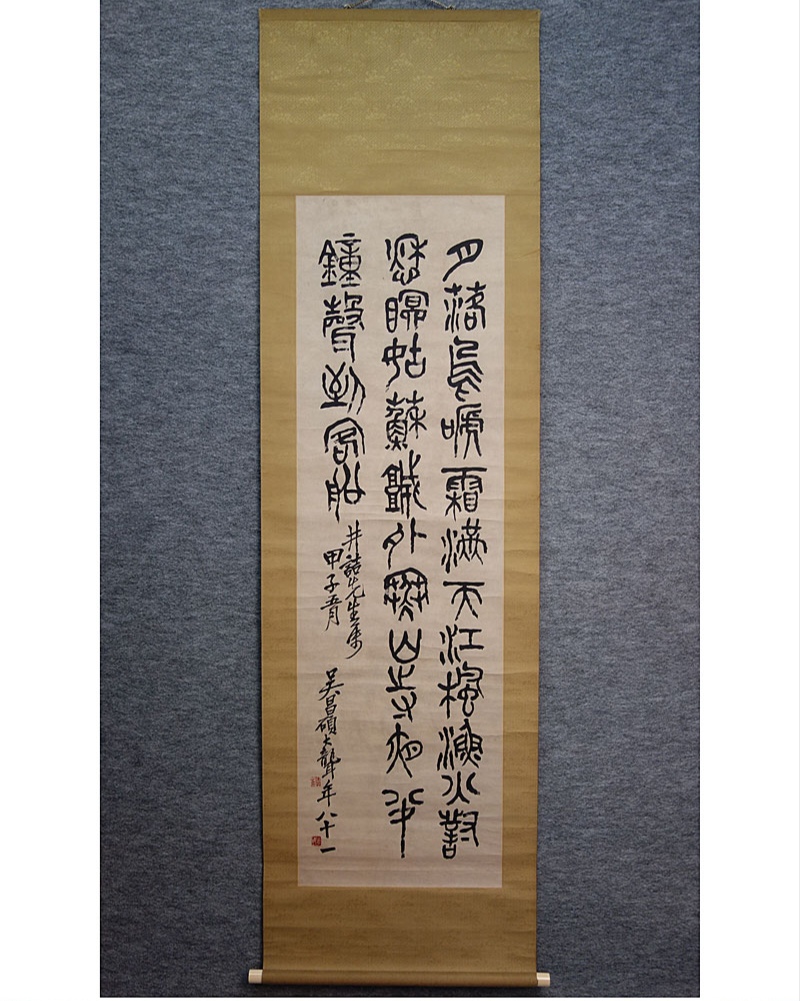 月落烏嗁霜滿天江楓漁火對
愁眠姑蘇城外寒山寺夜半
鐘聲到客船
井諳先生属
甲子五月
吳昌碩大聾年八十一